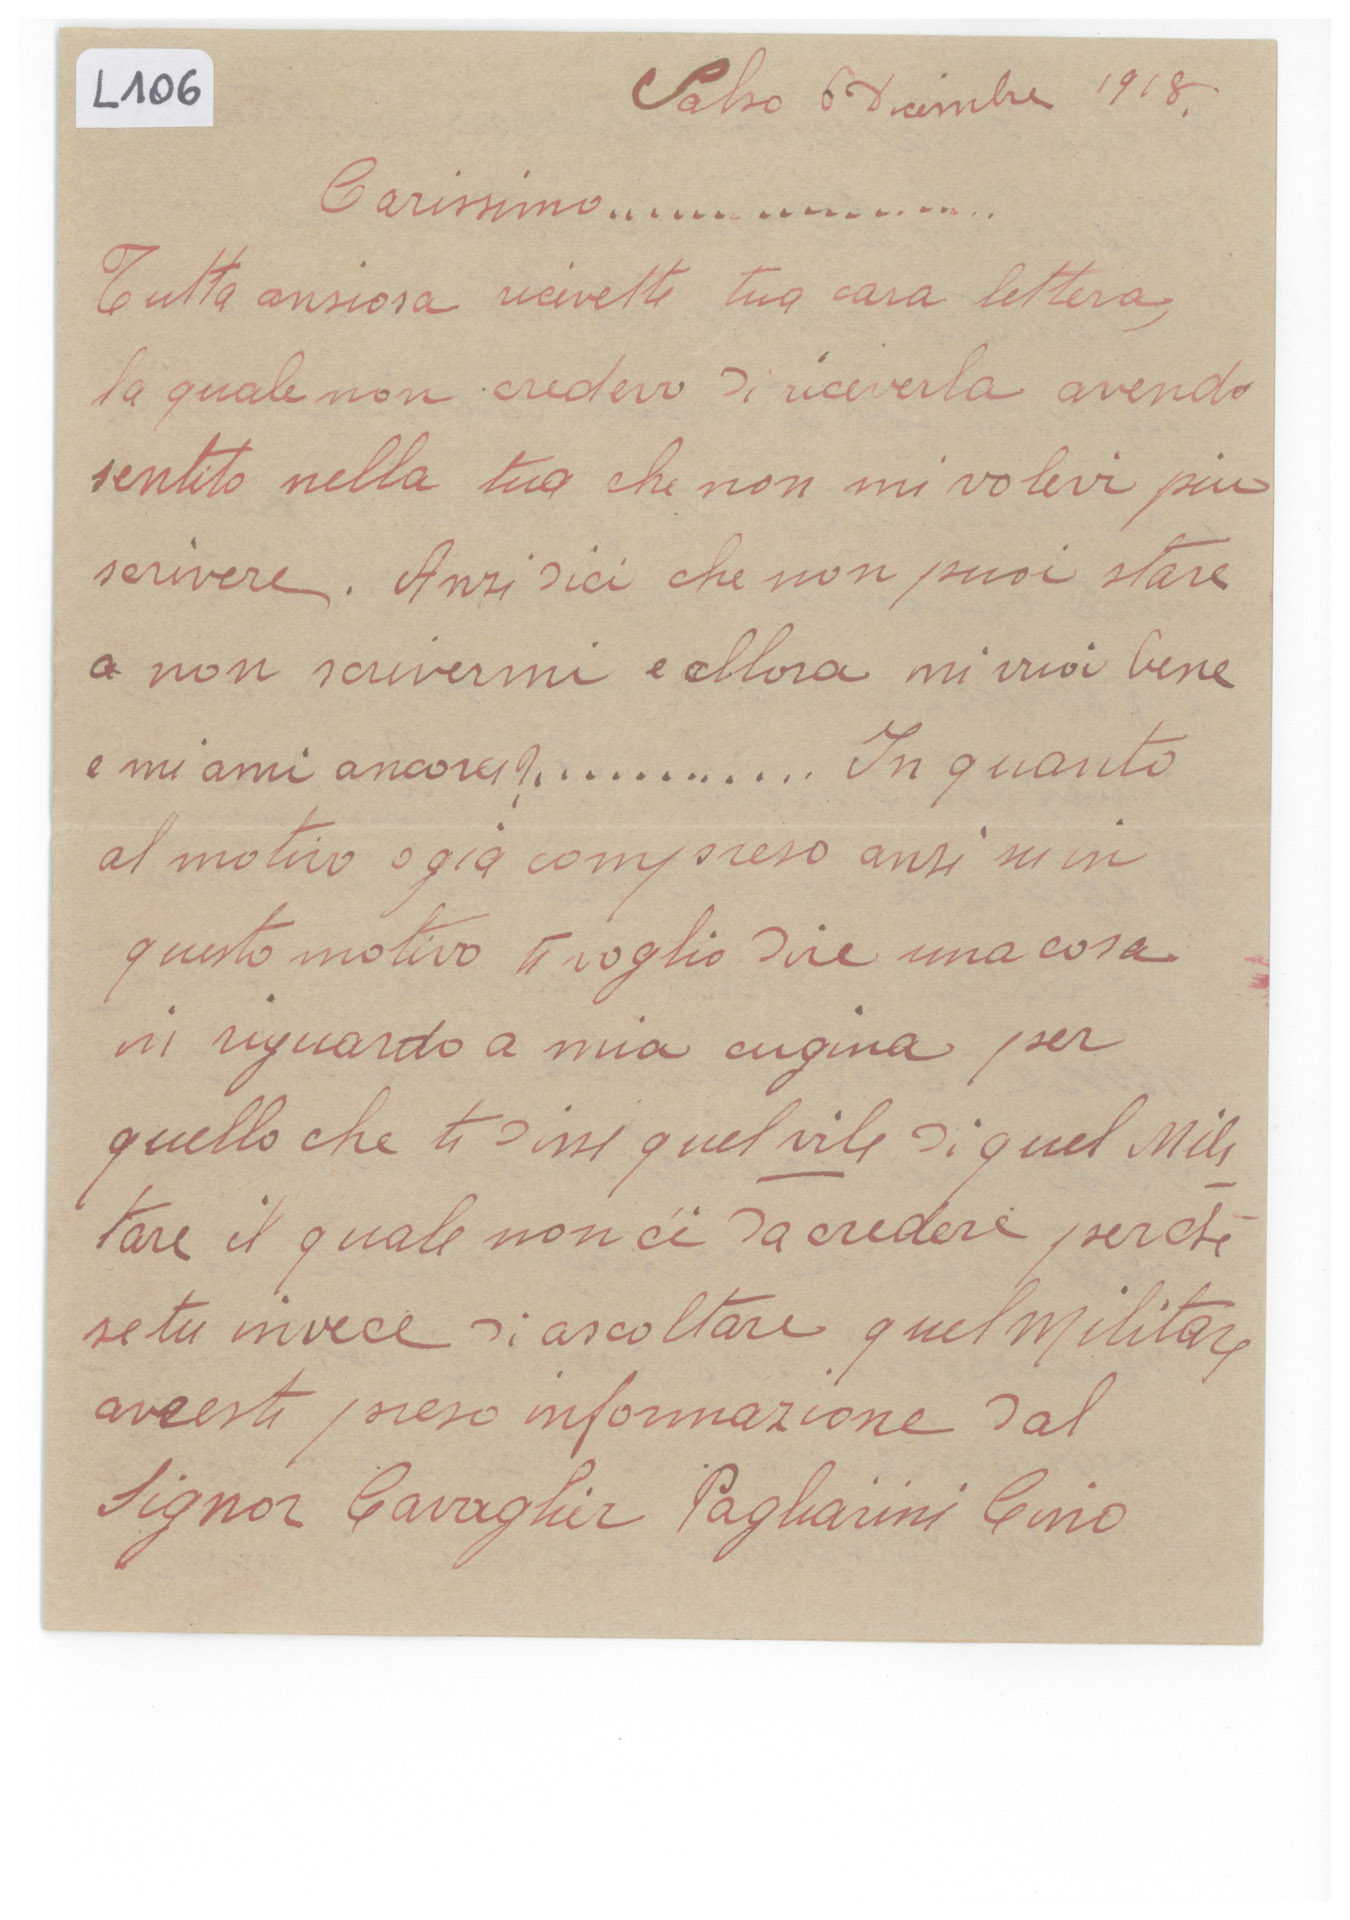 L106
Salso 6 Dicembre 1918.
Carissimo......................
Tutta ansiosa ricivetti tua cara lettera,
la quale non credevo di riceverla avendo
sentito nella tua che non mi volevi piu
scrivere. Anzi dici che non puoi stare
a non scrivermi e allora mi vuoi bene
e mi ami ancora?............. In quanto
al motivo o gia compreso anzi su in
questo motivo ti voglio dire una cosa
in riguardo a mia cugina per
quello che ti dissi quel vile di quel Mili
tare il quale non c'è da credere perchè
se tu invece di ascoltare quel Militare
aveesti preso informazione dal
Signor Cavaglier Pagliarini